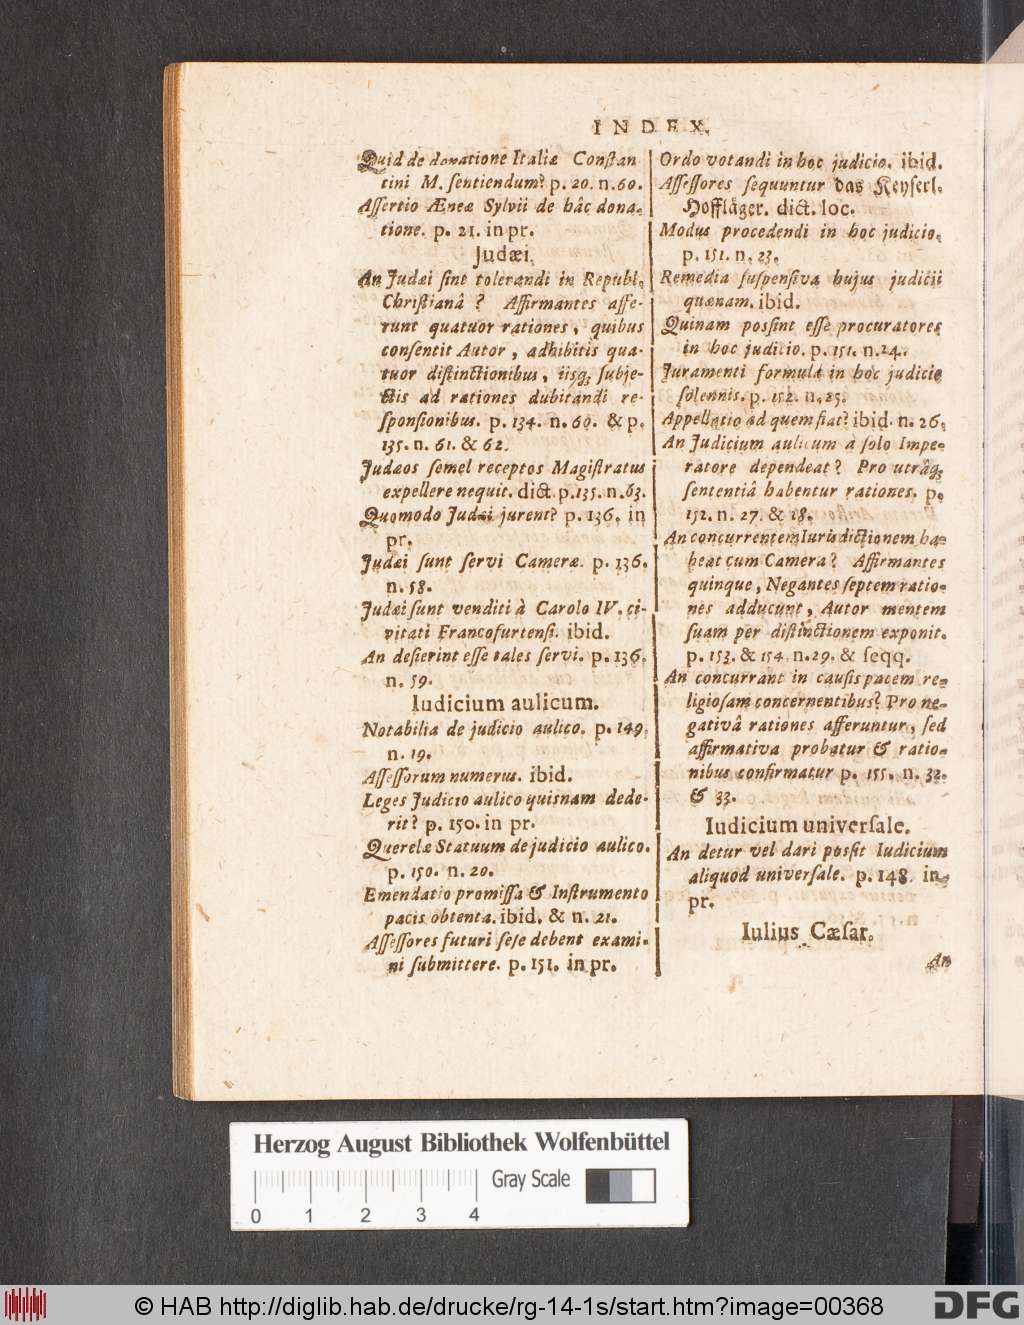 INDEX.
Quid de donatione Italiæ Constan
tini M. sentiendum? p. 20. n. 60.
Assertio Æneæ Sylvii de hâc dona-
tione. p. 21. in pr.
Judæi.
An Judæi sint tolerandi in Republ.
Christianâ? Affirmantes affe-
runt quatuor rationes, quibus
consentit Autor, adhibitis qua-
tuor distinctionibus, iisq; subje-
ctis ad rationes dubitandi re-
sponsionibus. p. 134. n. 60. & p.
135. n. 61. & 62.
Judæos semel receptos Magistratus
expellere nequit. dict. p. 135. n. 63.
Quomodo Judæi jurent? p. 136. in
pr.
Judæi sunt servi Cameræ. p. 136.
n. 58.
Judæi sunt venditi à Carolo IV. ci-
vitati Francofurtensi. ibid.
An desierint esse tales servi. p. 136.
n. 59.
Iudicium aulicum.
Notabilia de judicio aulico. p. 149.
n. 19.
Assessorum numerus. ibid.
Leges Judicio aulico quisnam dede-
rit? p. 150. in pr.
Querelæ Statuum de judicio aulico.
p. 150. n. 20.
Emendatio promissa & Instrumento
pacis obtenta. ibid. & n. 21.
Assessores futuri sese debent exami-
ni submittere. p. 151. in pr.
Ordo votandi in hoc judicio. ibid.
Assessores sequuntur das Keyserl.
Hoffläger. dict. loc.
Modus procedendi in hoc judicio.
p. 151. n. 23.
Remedia suspensiva hujus judicii
quænam. ibid.
Quinam possint esse procuratores
in hoc judicio. p. 151. n. 24.
Juramenti formula in hoc judicio
solennis. p. 152. n. 25.
Appellatio ad quem fiat? ibid. n. 26.
An Judicium aulicum à solo Impe-
ratore dependeat? Pro utrâq;
sententiâ habentur rationes. p.
152. n. 27. & 28.
An concurrentem Iurisdictionem ha-
beat cum Camera? Affirmantes
quinque, Negantes septem ratio-
nes adducunt, Autor mentem
suam per distinctionem exponit.
p. 153. & 154. n. 29. & seqq.
An concurrant in causis pacem re-
ligiosam concernentibus? Pro ne-
gativâ rationes afferuntur, sed
affirmativa probatur & ratio-
nibus confirmatur p. 155. n. 32.
& 33.
Iudicium universale.
An detur vel dari possit Iudicium
aliquod universale. p. 148. in
pr.
Iulius Cæsar.
An
Herzog August Bibliothek Wolfenbüttel
Gray Scale
0 1 2 3 4
© HAB http://diglib.hab.de/drucke/rg-14-1s/start.htm?image=00368
DFG